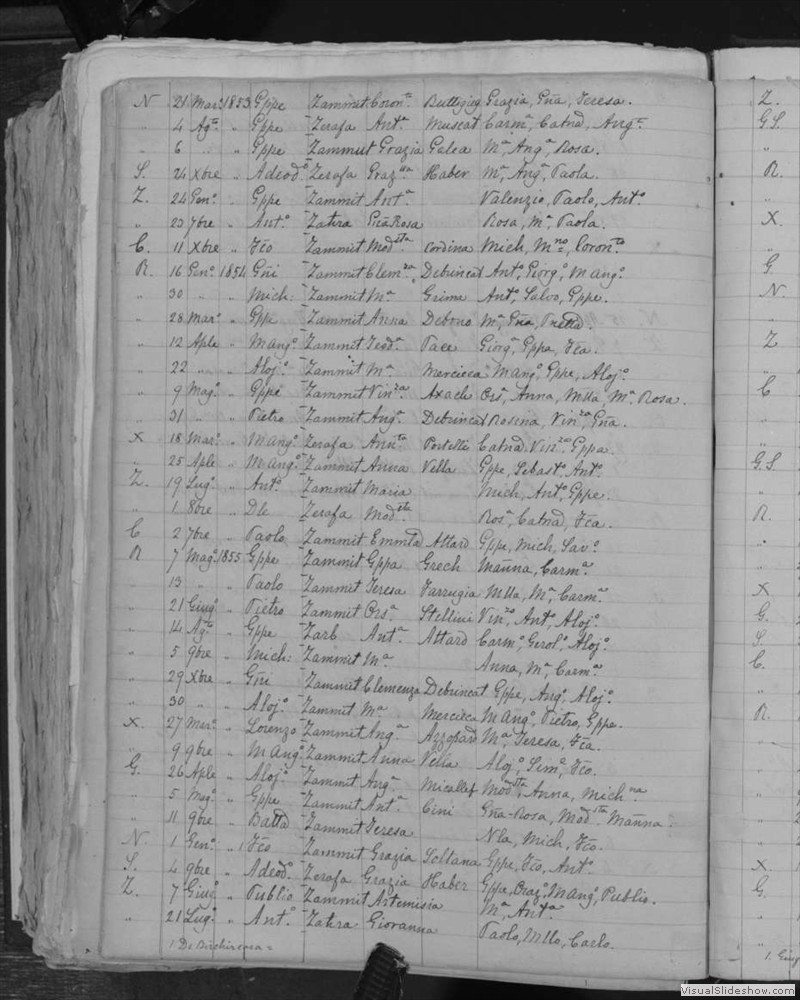 N 21 Mar. 1853 Gppe Zammit Coron.ta Buttigieg Grazia, Gña, Teresa.
" 4 Ag.to " Gppe Zerafa Ant.a Muscat Carm.a, Catnd, Ang.a
" 6 " " Gppe Zammut Grazia Galea M.a, Ang.a, Rosa.
S. 24 Xbre " Adeod.o Zerafa Graz.na Haber M.a, Ang.a, Paola.
Z. 24 Gen.o Gppe Zammit Ant.a Valenzio, Paolo, Ant.o
" 23 7bre " Ant.o Zahra Gña Rosa Rosa, M.a, Paola.
C. 11 Xbre " Fco Zammit Mod.sta Cordina Mich, M.no, Coron.to
R. 16 Gen.o 1854 Gñi Zammit Clem.za Debrincat Ant.o, Giorg.o, M Ang.o
" 30 " " Mich: Zammit M.a Grima Ant.o, Salvo, Gppe.
" 28 Mar.o " Gppe Zammit Anna Debono M.a, Gña,
" 12 Aple " M Ang.o Zammit Teod.a Pace Giorg.a, Gppa, Fca.
" 22 " " Aloj.o Zammit M.a Mercieca M Ang.o, Gppe, Aloj.o
" 9 Mag.o " Gppe Zammit Vin.za Axach Ors.a, Anna, Mlla, M.a Rosa.
" 31 " " Pietro Zammit Ang.a Debrincat Rosina, Vin.za, Gña.
X 18 Mar.o " M Ang.o Zerafa Ann.ta Portelli Catnd, Vin.za, Gppa.
" 25 Aple " M Ang.o Zammit Anna Vella Gppe, Sebast.o, Ant.o
Z. 19 Lug.o " Ant.o Zammit Maria Mich, Ant.o, Gppe.
" 1 8bre " Dle Zerafa Mod.sta Ros.a, Catnd, Fca.
C 2 7bre " Paolo Zammit Attard Gppe, Mich, Sav.o
R 7 Mag.o 1855 Gppe Zammit Gppa Grech Mañna, Carm.a
" 13 " " Paolo Zammit Teresa Farrugia Mlla, M.a, Carm.a
" 21 Giug.o " Pietro Zammit Ors.a Stellini Vin.zo, Ant.o, Aloj.o
" 14 Ag.to " Gppe Zarb Ant.a Attard Carm.o, Gerol.o, Aloj.o
" 5 9bre " Mich: Zammit M.a Anna, M.a, Carm.a
" 29 Xbre " Gñi Zammit Clemenza Debrincat Gppe, Ang.o, Aloj.o
" 30 " " Aloj.o Zammit M.a Mercieca M Ang.o, Pietro, Gppe.
X. 27 Mar.o " Lorenzo Zammit Ang.a Azzopard M.a, Teresa, Fca.
" 9 9bre " M Ang.o Zammit Anna Vella Aloj.o, Sim.e, Fco.
G. 26 Aple " Aloj.o Zammit Ang.a Micallef Mod.sta, Anna, Mich.na
" 5 Mag.o " Gppe Zammit Ant.a Cini Gña-Rosa, Mod.sta, Mañna.
" 11 9bre " Battd Zammit Teresa Nla, Mich, Fco.
N. 1 Gen.o " Fco Zammit Grazia Soltana Gppe, Fco, Ant.o
S. 4 9bre " Adeod.o Zerafa Grazia Haber Gppe, Oraz.o, M Ang.o, Publio.
Z. 7 Giug.o " Publio Zammit Artemisia M.a, Ant.a
" 21 Lug.o " Ant.o Zahra Giovanna Paolo, Mllo, Carlo.
1 De Birchircara =
Z.
G.S.
"
R.
"
X.
"
G.
N.
"
Z
"
C
"
"
G.S.
"
R.
"
"
X
G.
S.
C.
"
R.
"
"
"
"
"
X.
G.
"
"
1. Giug
VisualSlideshow.com